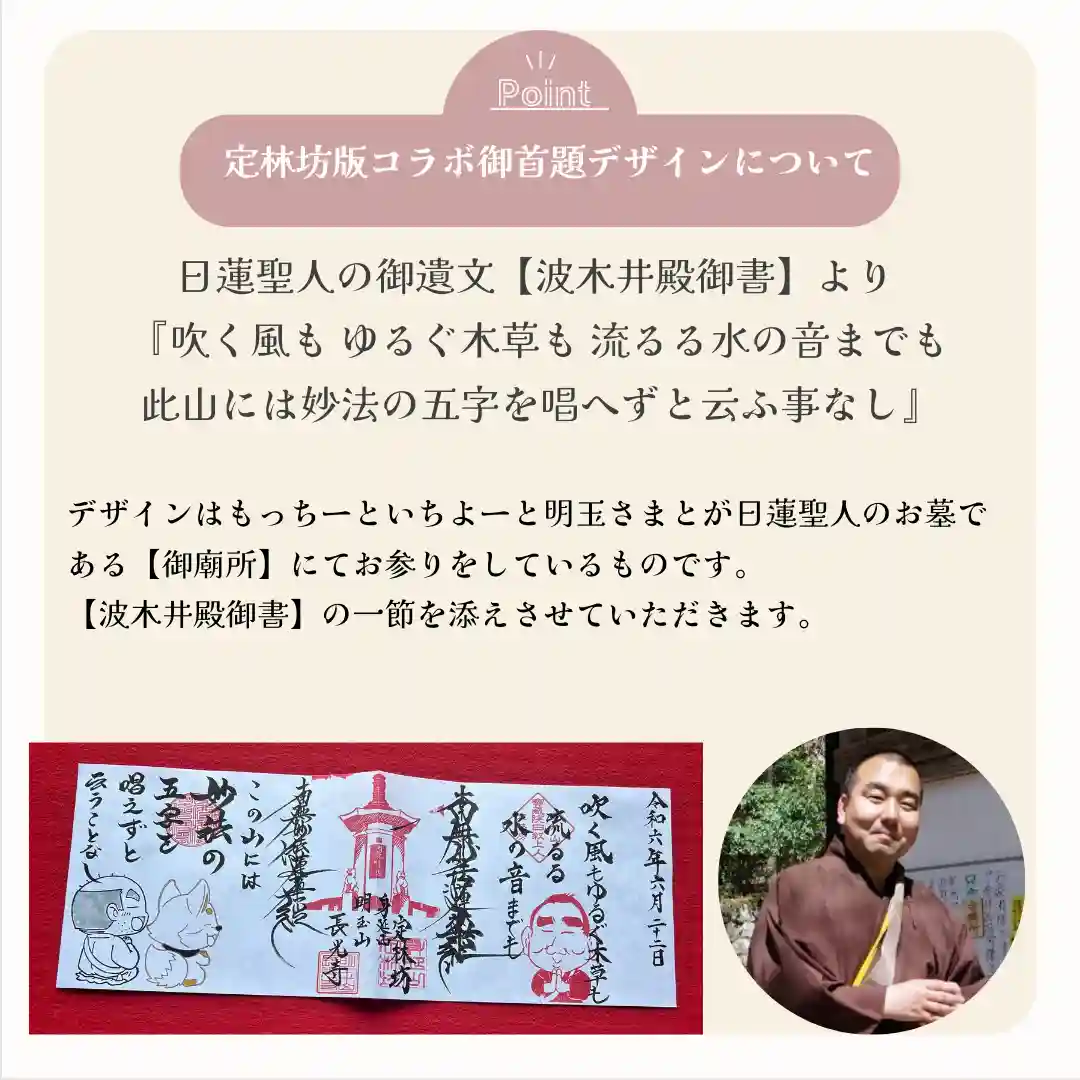 Point
定林坊版コラボ御首題デザインについて
日蓮聖人の御遺文【波木井殿御書】より
『吹く風も ゆるぐ木草も 流るる水の音までも
此山には妙法の五字を唱へずと云ふ事なし』
デザインはもっちーといちよーと明玉さまとが日蓮聖人のお墓で
ある【御廟所】にてお参りをしているものです。
【波木井殿御書】の一節を添えさせていただきます。
令和六年六月二十二日
吹く風もゆるぐ木草も
流るる
水の音までも
南無妙法蓮華経
身延山
定林坊
明玉山
長光寺
南無妙法蓮華経
この山には
妙法の
五字を
唱えずと
云うことなし